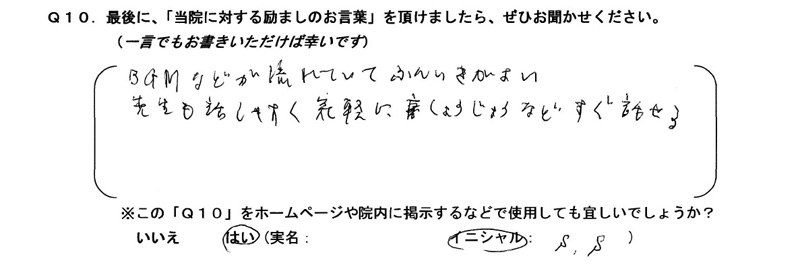 Ｑ１０．最後に、「当院に対する励ましのお言葉」を頂けましたら、ぜひお聞かせください。
（一言でもお書きいただけば幸いです）
BGMなどが流れていてふんいきがよい
先生も話しやすく気軽に しょうじょうなどすぐ話せる
※この「Ｑ１０」をホームページや院内に掲示するなどで使用しても宜しいでしょうか？
いいえ はい（実名： イニシャル： S. S ）